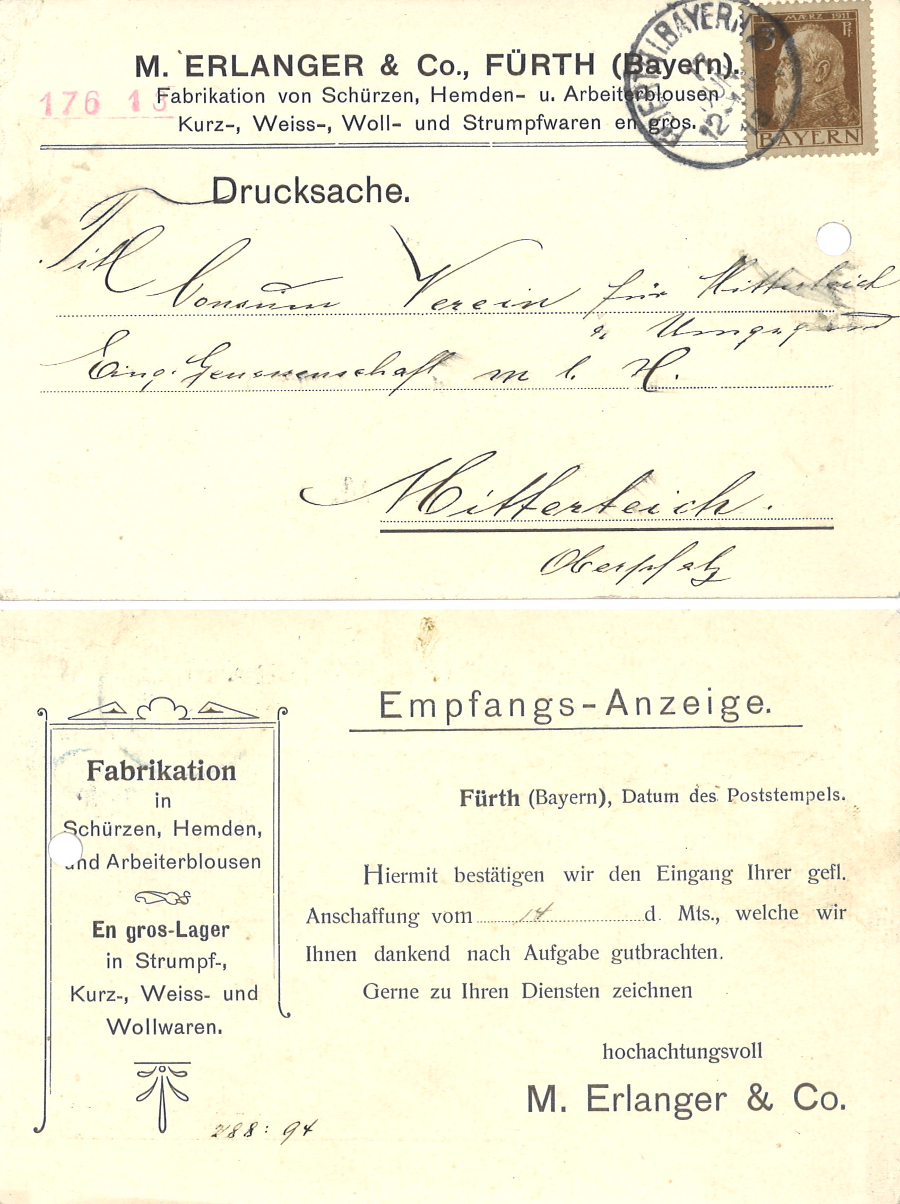 M. ERLANGER & Co., FÜRTH (Bayern).
176 1
Fabrikation von Schürzen, Hemden- u. Arbeiterblousen
Kurz-, Weiss-, Woll- und Strumpfwaren en gros.
MÆRZ 1911
BAYERN
Drucksache.
Titl
Consum Verein für Mitterteich
u. Umgegend
Eing. Genossenschaft m b. H.
Mitterteich.
Oberpfalz
Empfangs-Anzeige.
Fürth (Bayern), Datum des Poststempels.
Hiermit bestätigen wir den Eingang Ihrer gefl.
Anschaffung vom 14 d. Mts., welche wir
Ihnen dankend nach Aufgabe gutbrachten.
Gerne zu Ihren Diensten zeichnen
hochachtungsvoll
M. Erlanger & Co.
Fabrikation
in
Schürzen, Hemden,
und Arbeiterblousen
En gros-Lager
in Strumpf-,
Kurz-, Weiss- und
Wollwaren.
288: 94